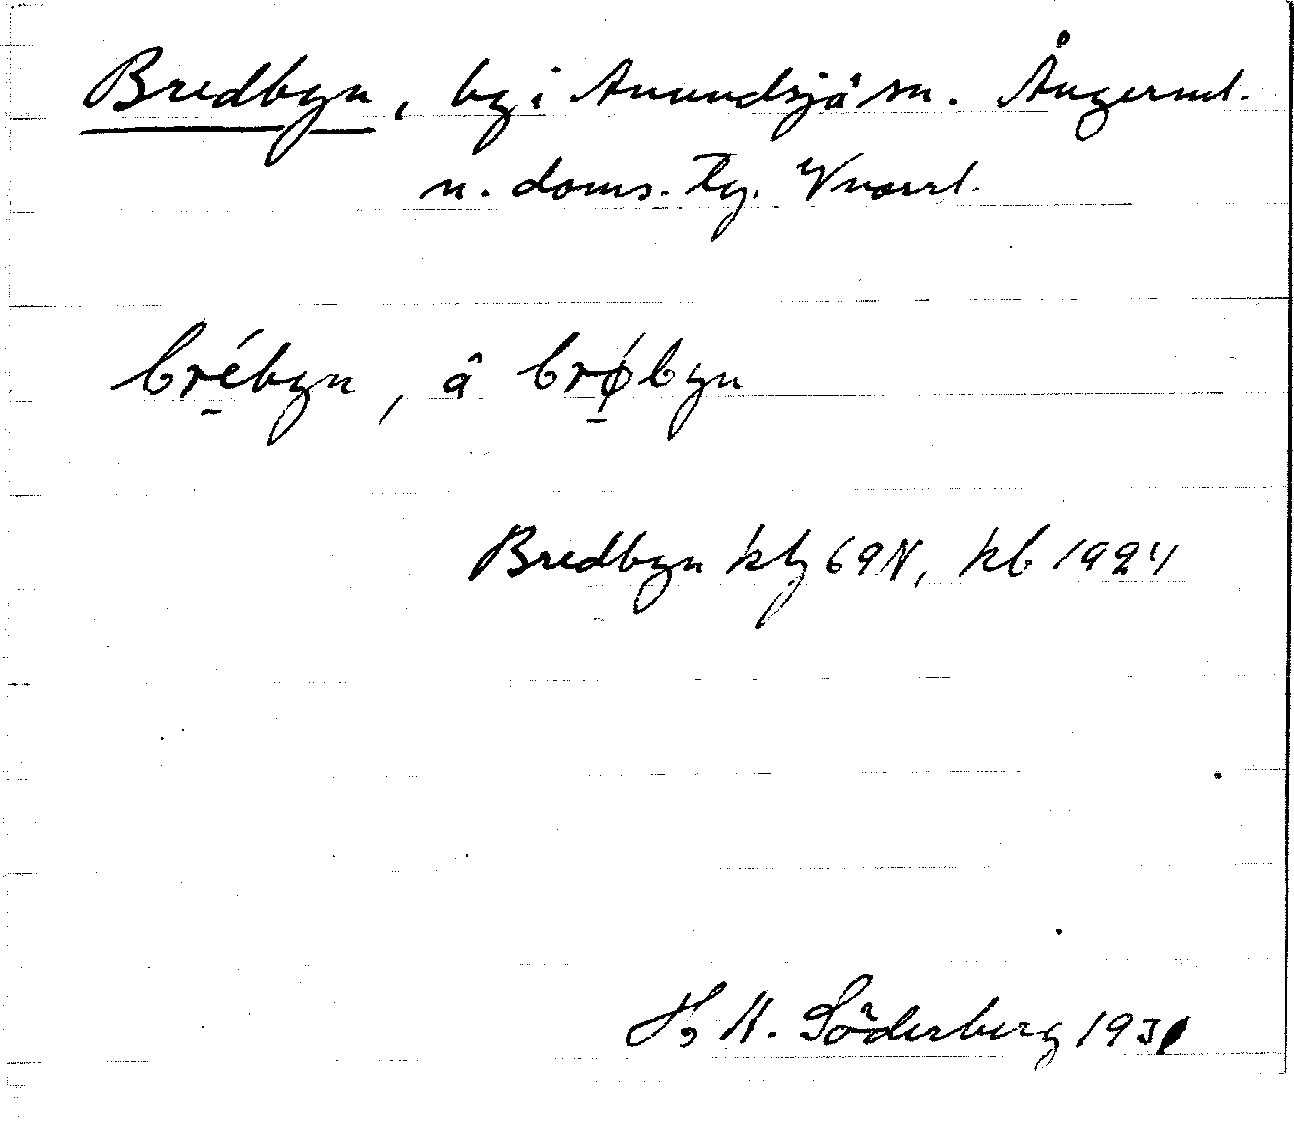 Bredbyn, by i Anundsjö sn. Ångerml.
n. doms. tg. Vnorrl.
brébyn, â brǿbyn
Bredbyn ktj 69N, kb 1924
H. Söderberg 1931